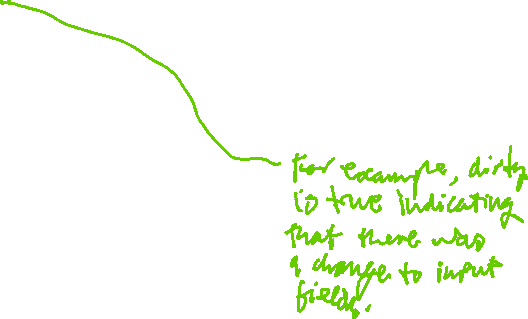 For example, dirty
is true indicating
that there was
a change to input
fields.